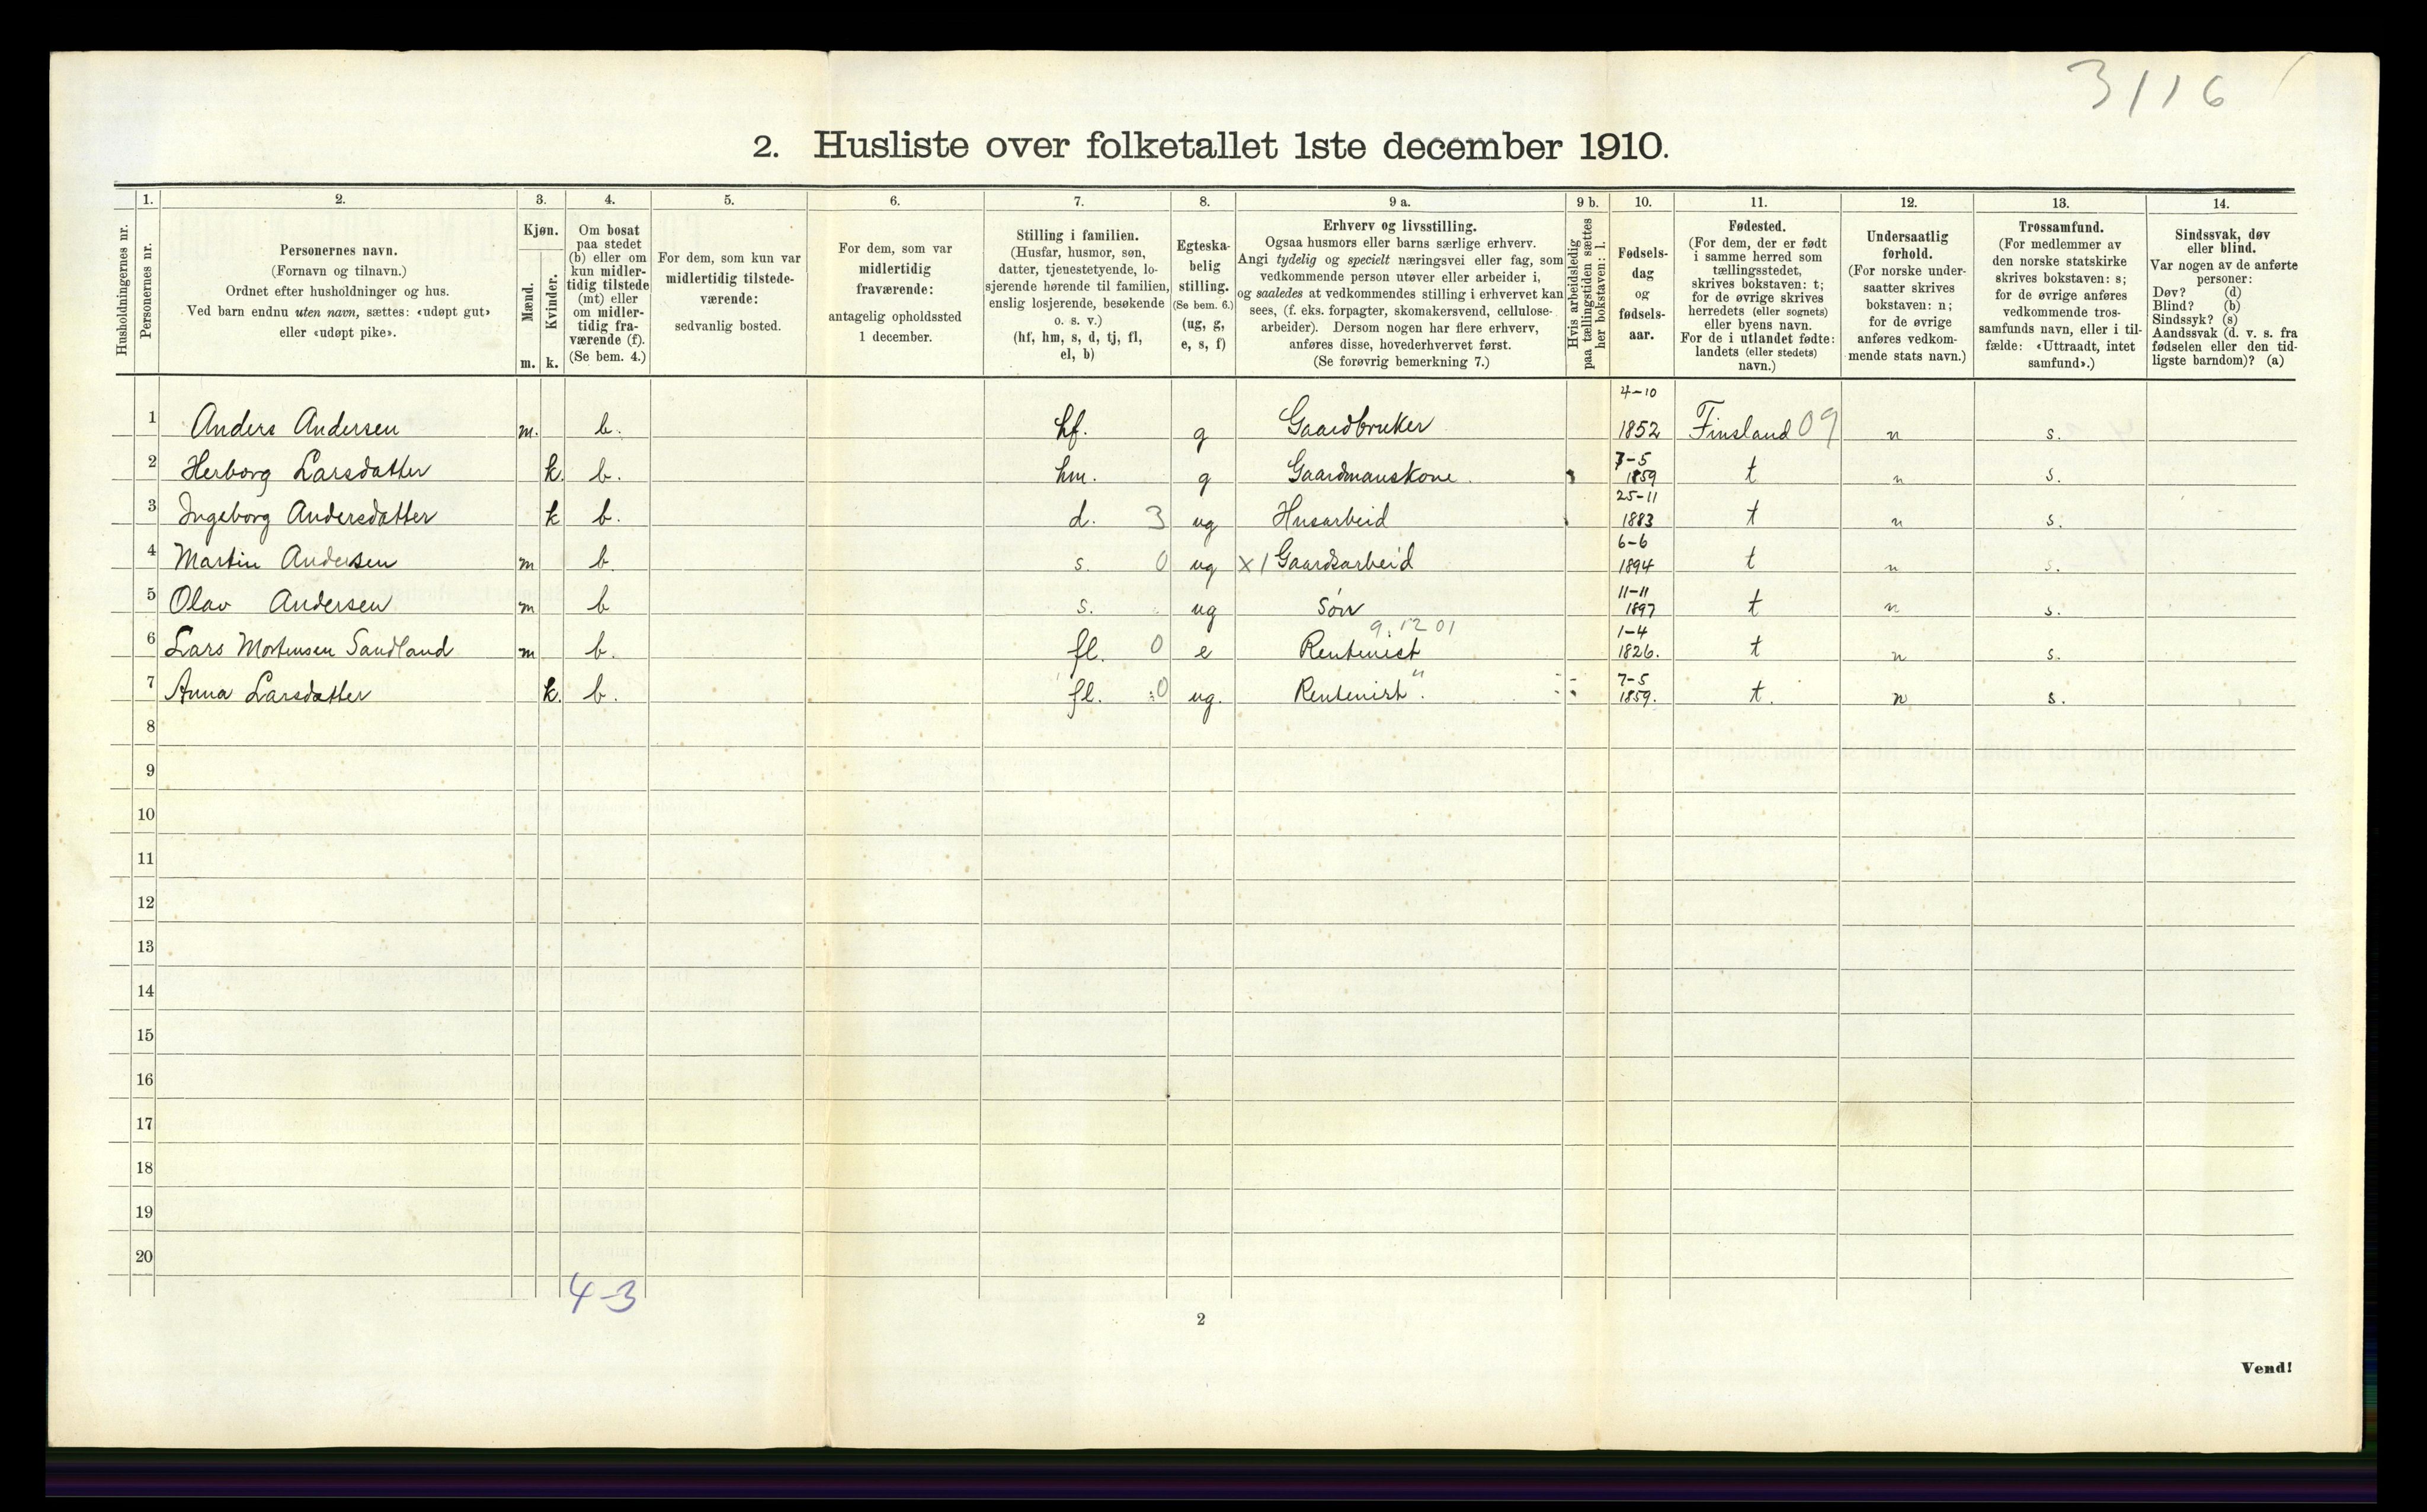 3/16
2. Husliste over folketallet 1ste december 1910.
1. 2. 3. 4. 5. 6. 7. 8. 9 a. 9 b. 10. 11. 12. 13. 14.
Husholdningernes nr.
Personernes nr.
Personernes navn.
(Fornavn og tilnavn.)
Ordnet efter husholdninger og hus.
Ved barn endnu uten navn, sættes: «udøpt gut»
eller «udøpt pike».
Kjøn.
Mænd.
Kvinder.
m. k.
Om bosat
paa stedet
(b) eller om
kun midler-
tidig tilstede
(mt) eller
om midler-
tidig fra-
værende (f).
(Se bem. 4.)
For dem, som kun var
midlertidig tilstede-
værende:
sedvanlig bosted.
For dem, som var
midlertidig
fraværende:
antagelig opholdssted
1 december.
Stilling i familien.
(Husfar, husmor, søn,
datter, tjenestetyende, lo-
sjerende hørende til familien,
enslig losjerende, besøkende
o. s. v.)
(hf, hm, s, d, tj, fl,
el, b)
Egteska-
belig
stilling.
(Se bem. 6.)
(ug, g,
e, s, f)
Erhverv og livsstilling.
Ogsaa husmors eller barns særlige erhverv.
Angi tydelig og specielt næringsvei eller fag, som
vedkommende person utøver eller arbeider i,
og saaledes at vedkommendes stilling i erhvervet kan
sees, (f. eks. forpagter, skomakersvend, cellulose-
arbeider). Dersom nogen har flere erhverv,
anføres disse, hovederhvervet først.
(Se forøvrig bemerkning 7.)
Hvis arbeidsledig
paa tællingstiden sættes
her bokstaven: l.
Fødsels-
dag
og
fødsels-
aar.
Fødested.
(For dem, der er født
i samme herred som
tællingsstedet,
skrives bokstaven: t;
for de øvrige skrives
herredets (eller sognets)
eller byens navn.
For de i utlandet fødte:
landets (eller stedets)
navn.)
Undersaatlig
forhold.
(For norske under-
saatter skrives
bokstaven: n;
for de øvrige
anføres vedkom-
mende stats navn.)
Trossamfund.
(For medlemmer av
den norske statskirke
skrives bokstaven: s;
for de øvrige anføres
vedkommende tros-
samfunds navn, eller i til-
fælde: «Uttraadt, intet
samfund».)
Sindssvak, døv
eller blind.
Var nogen av de anførte
personer:
Døv? (d)
Blind? (b)
Sindssyk? (s)
Aandssvak (d. v. s. fra
fødselen eller den tid-
ligste barndom)? (a)
1 Anders Andersen m. b. hf. g Gaardbruker 4-10 1852 Finsland 09 n s.
2 Herborg Larsdatter k. b. hm. g Gaardmanskone. 7-5 1859 t n s.
3 Ingeborg Andersdatter k b. d. 3 ug Husarbeid 25-11 1883 t n s.
4 Martin Andersen m b s. 0 ug x1 Gaardsarbeid 6-6 1894 t n s.
5 Olav Andersen m b s. ug Søn 11-11 1897 t n s.
9.12 01
6 Lars Mortensen Sandland m b. fl. 0 e Rentenist 1-4 1826. t n s.
7 Anna Larsdatter k. b. fl. 0 ug. Rentenist ". 7-5 1859. t. n s.
8
9
10
11
12
13
14
15
16
17
18
19
20
4-3
2
Vend!